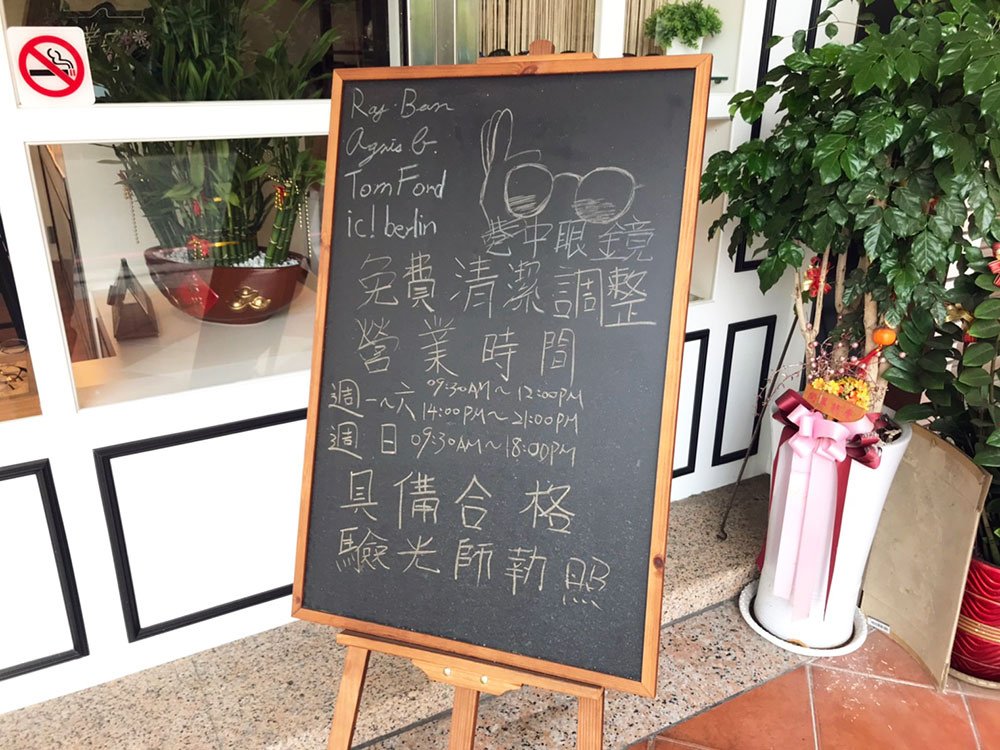 Ray·Ban
agnis b.
Tom Ford
ic! berlin
巷中眼鏡
免費清潔調整
營業時間
週一~六 09:30AM~12:00PM
14:00PM~21:00PM
週日 09:30AM~18:00PM
具備合格
驗光師執照